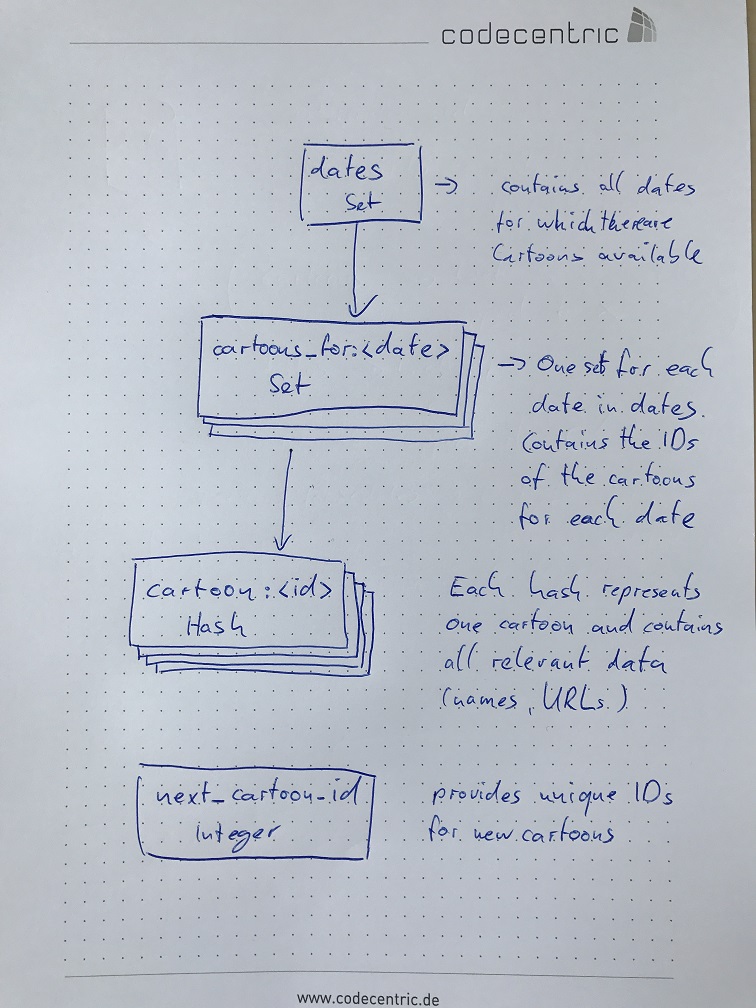 codecentric
dates
Set
→ contains all dates
for which there are
Cartoons available
cartoons_for:<date>
Set
→ One set for each
date in dates.
Contains the IDs
of the cartoons
for each date
cartoon:<id>
Hash
Each hash represents
one cartoon and contains
all relevant data
(names, URLs.)
next_cartoon_id
Integer
provides unique IDs
for new cartoons
www.codecentric.de